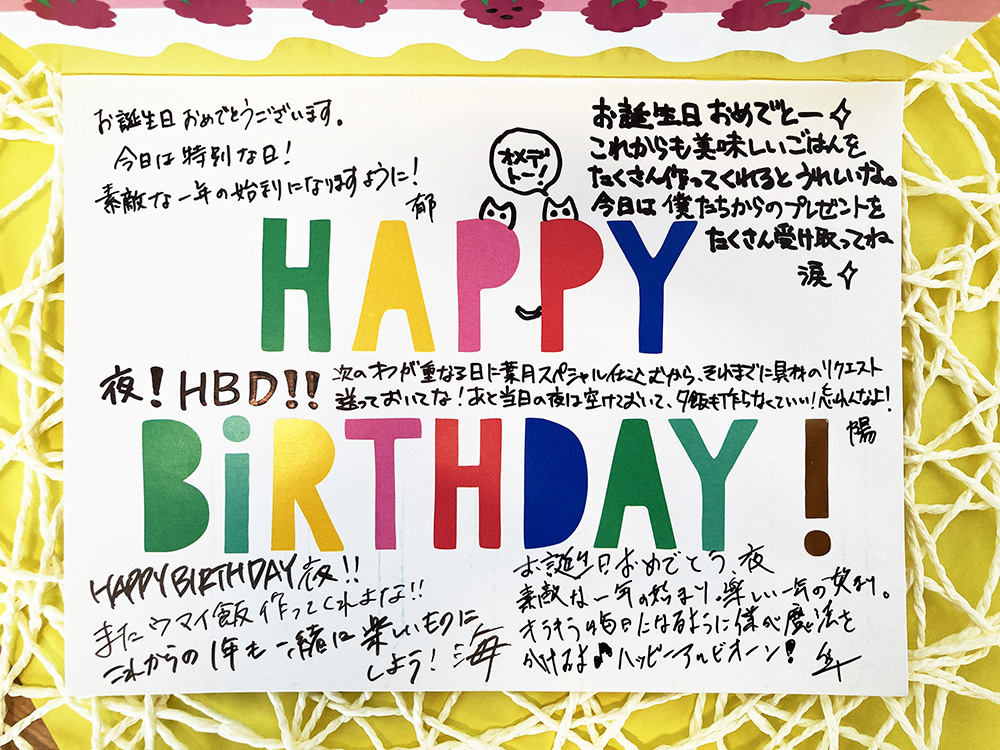 お誕生日おめでとうございます。
今日は特別な日！
素敵な一年の始まりになりますように！
郁
オメデ
トー！
お誕生日おめでとー✧
これからも美味しいごはんを
たくさん作ってくれるとうれしいな。
今日は僕たちからのプレゼントを
たくさん受け取ってね
涙✧
HAPPY
夜！HBD!!
次のオフが重なる日に葉月スペシャル仕込むから、それまでに具材のリクエスト
送っておいてな！あと当日の夜は空けておいて、夕飯も作らなくていい！忘れんなよ！
陽
BiRTHDAY！
HAPPY BIRTHDAY 夜!!
またウマイ飯作ってくれよな!!
これからの1年も一緒に楽しいものに
しよう！海
お誕生日おめでとう、夜
素敵な一年の始まり、楽しい一年の始まり。
キラキラな毎日になるように僕が魔法を
かけるよ♪ハッピーアルビオーン！